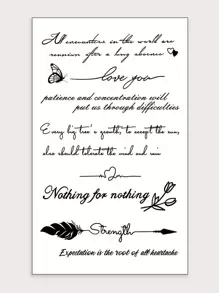 All encounters in the world are
reunion after a long absence
love you
patience and concentration will
put us through difficulties
Every big tree's growth, to accept the sun,
also should tolerate the wind and rain
Nothing for nothing
Strength
Expectation is the root of all heartache